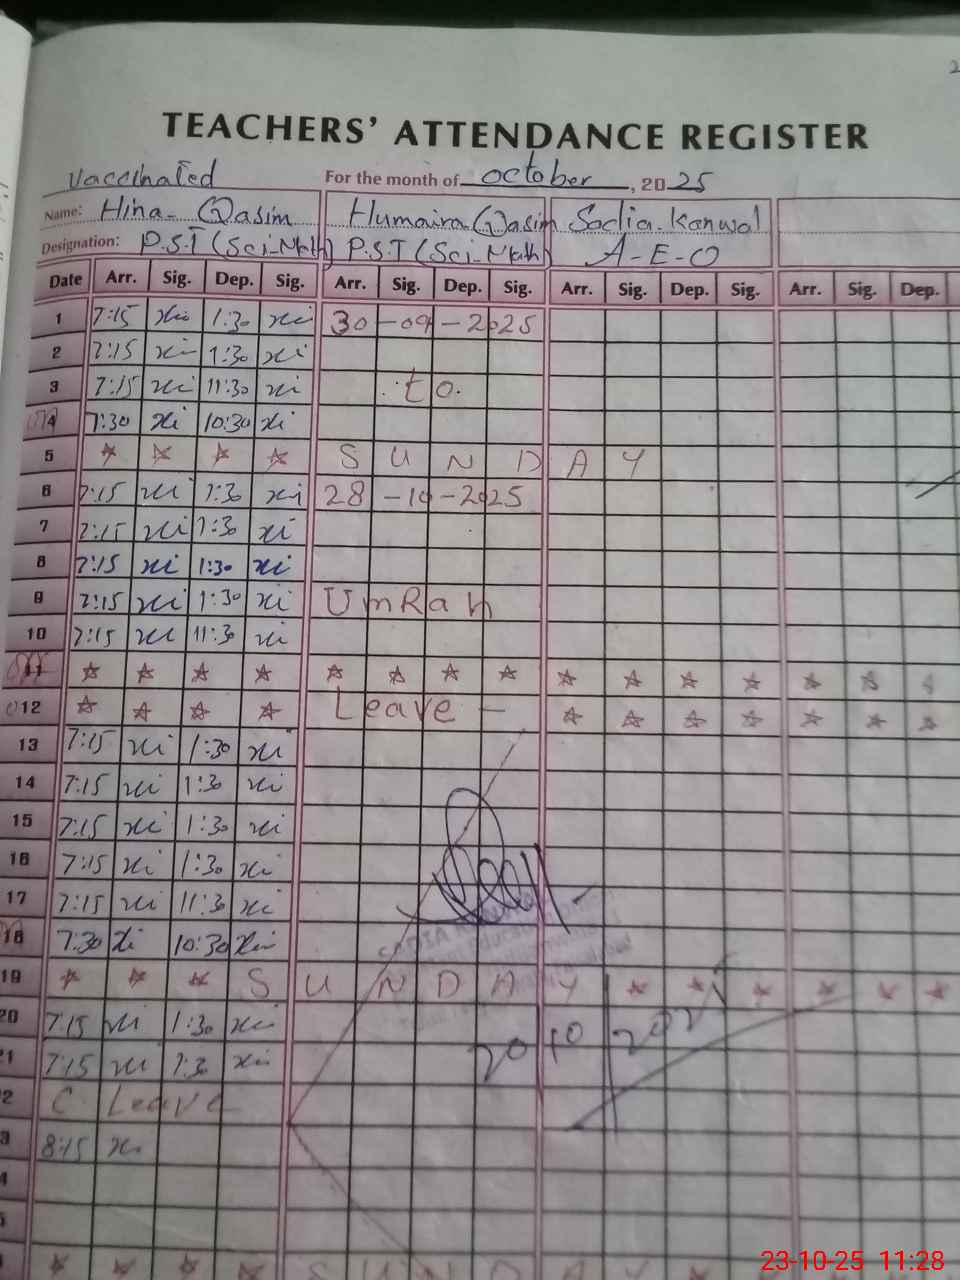 TEACHERS' ATTENDANCE REGISTER
Vaccinated For the month of October, 2025
Name: Hina Qasim Humaira Qasim Sadia Kanwal
Designation: P.S.T (Sci-Math) P.S.T (Sci-Math) A-E-O
Date Arr. Sig. Dep. Sig. Arr. Sig. Dep. Sig. Arr. Sig. Dep. Sig. Arr. Sig. Dep.
1 7:15 1:30 30-09-2025
2 7:15 1:30
3 7:15 11:30 to
4 7:30 10:30
5 SUNDAY
6 7:15 1:30 28-10-2025
7 7:15 1:30
8 7:15 1:30
9 7:15 1:30 UmRah
10 7:15 11:30
11
12 Leave -
13 7:15 1:30
14 7:15 1:30
15 7:15 1:30
16 7:15 1:30
17 7:15 11:30
18 7:30 10:30
SADIA
19 SUNDAY
20 7:15 1:30
20/10/202
1 7:15 1:30
2 C. Leave
3 8:15
4
5
SUNDAY
23-10-25 11:28